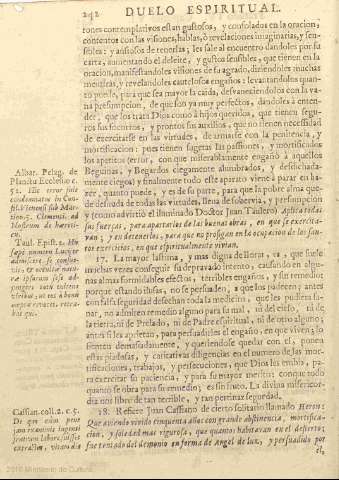 242 DUELO ESPIRITUAL.
rones contemplativos estan gustosos, y consolados en la oracion,
contentos con las visiones, hablas, ò revelaciones imaginarias, y sen-
sibles: y ansiosos de tenerlas; les sale al encuentro dandoles por su
carta, aumentando el deleite, y gustos sensibles, que tienen en la
oracion, manifestandoles visiones de su agrado, diziendoles muchas
mentiras, y revelandoles cautelosos engaños: levantandolos quan-
to puede, para que sea mayor la caida, desvaneciendolos con la va-
na presumpcion, de que son ya muy perfectos, dandoles à enten-
der, que los trata Dios como à hijos queridos, que tienen segu-
ros sus socorros, y prontos sus auxilios, que no tienen necessidad
de exercitarse en las virtudes, de insistir con la penitencia, y
mortificacion: pues tienen sugetas las passiones, y mortificados
los apetitos (error, con que miserablemente engañò à aquellos
Beguinas, y Begardos ciegamente alumbrados, y desdichada-
mente ciegos) y finalmente todo esse aparto viene à parar en ha-
zer, quanto puede, y es de su parte, para que la pobre alma que-
de desnuda de todas las virtudes, llena de sobervia, y persumpcion
y (como advirtiò el iluminado Doctor Juan Taulero) Aplica todas
sus fuerzas, para apartarlos de las buenas obras, en que se exercita-
van; y en detenerlos, para que no prosigan en la ocupacion de los san-
tos exercicios, en que espiritualmente vivian.
17. La mayor lastima, y mas digna de llorar, es, que suele
muchas vezes conseguir su depravado intento, causando en algu-
nas almas formidables efectos, terribles engaños, y sin remedio;
porque estando ilusas, no se persuaden, à que los padecen; antes
con falsa seguridad desechan toda la medicina, que les pudiera sa-
nar, no admiten remedio alguno para su mal, ni del cielo, ni de
la tierra, ni de Prelado, ni de Padre espiritual, ni de otro alguno;
antes si les apretan, para persuadirles el engaño, en que viven; lo
sienten demasiadamente, y queriendose quedar con el, ponen
estas piadosas, y caritativas diligencias en el numero de las mor-
tificaciones, trabajos, y persecuciones, que Dios les embia, pa-
ra exercitar su paciencia, y para su mayor merito; conque todo
quanto se obra para su remedio; es sin fruto. La divina misericor-
dia nos libre de tan terrible, y tan perniciosa seguridad.
18. Refiere Juan Cassiano de cierto solitario llamado Heron:
Que aviendo vivido cinquenta años con grande abstinencia, mortifica-
cion, y soledad mas rigurosa, que quantos habitavan en el desierto;
fue tentado del demonio en forma de Angel de luz, y persuadido por
el,
Albar. Pelag. de
Planctu Ecclesiæ c.
52. Ille error fuit
condemnatus in Con-
sil. Vienensi sub Mar-
tino 5. Clement. ad
Nostrum de hæreti-
cis.
Taul. Epist. 2.
Cassian. coll. 2. c. 5.
De quo enim pene
fratrum labore suisset
extractus,
2010 Ministerio de Cultura